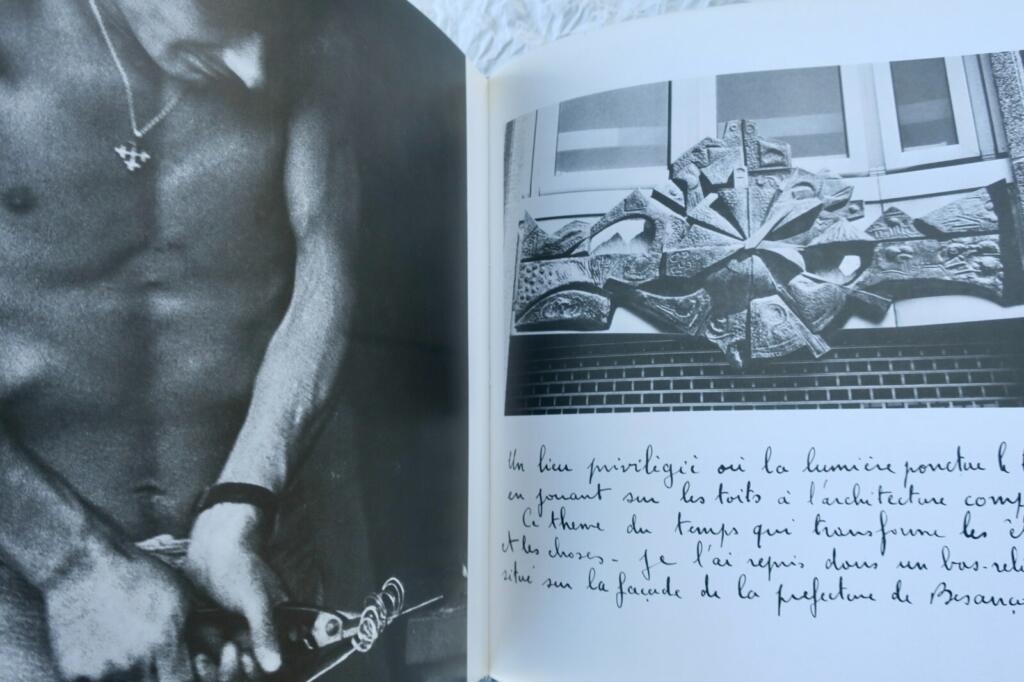 Un lieu priviligié où la lumière ponctue le
en jouant sur les toits à l'architecture
Ce theme du temps qui transforme les
et les choses - je l'ai repris dans un
situé sur la façade de la prefecture de